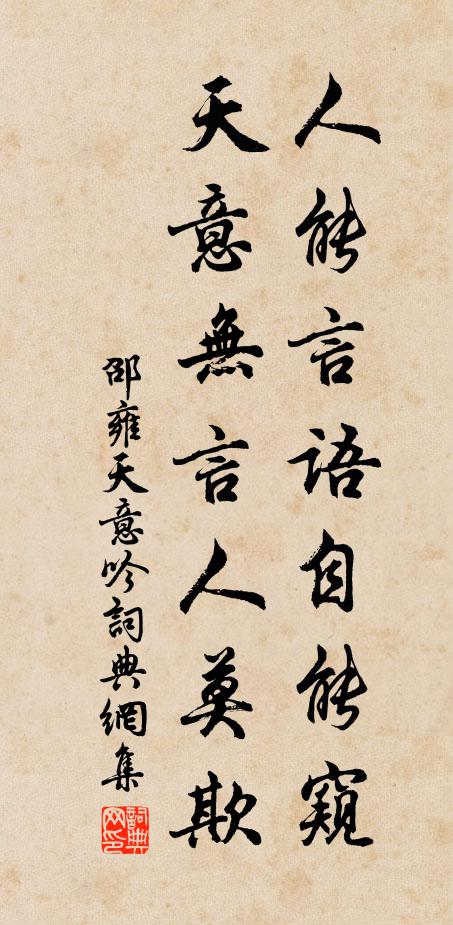 人能言語自能窺
天意無言人莫欺
邵雍天意吟詞典網集
詞典
网印